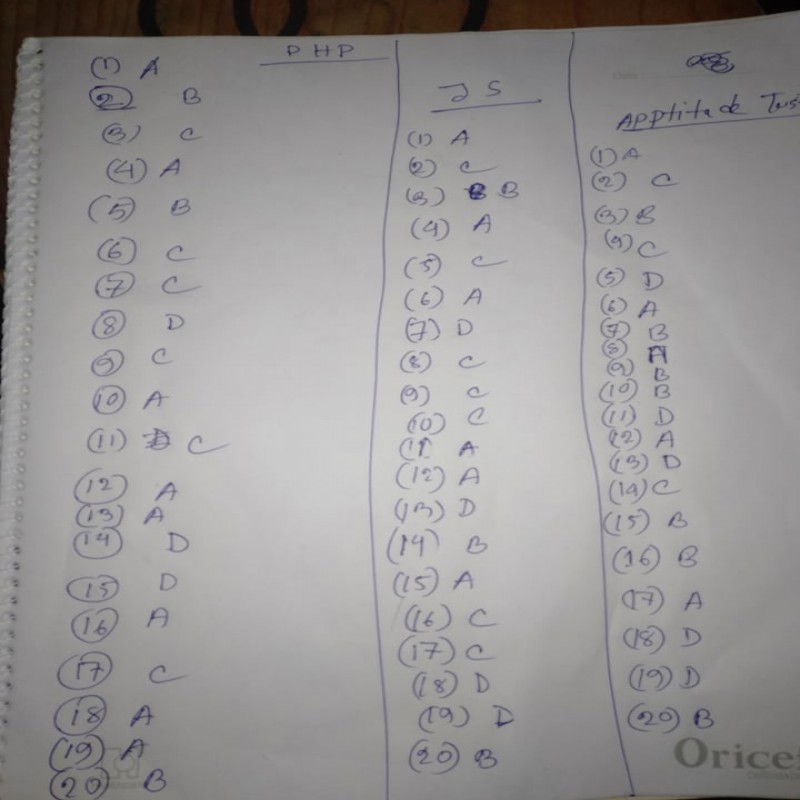 PHP
(1) A
(2) B
(3) C
(4) A
(5) B
(6) C
(7) C
(8) D
(9) C
(10) A
(11) C
(12) A
(13) A
(14) D
(15) D
(16) A
(17) C
(18) A
(19) A
(20) B
JS
(1) A
(2) C
(3) B
(4) A
(5) C
(6) A
(7) D
(8) C
(9) C
(10) C
(11) A
(12) A
(13) D
(14) B
(15) A
(16) C
(17) C
(18) D
(19) D
(20) B
Apptitade
(1) A
(2) C
(3) B
(4) C
(5) D
(6) A
(7) B
(8) A
(9) B
(10) B
(11) D
(12) A
(13) D
(14) C
(15) B
(16) B
(17) A
(18) D
(19) D
(20) B